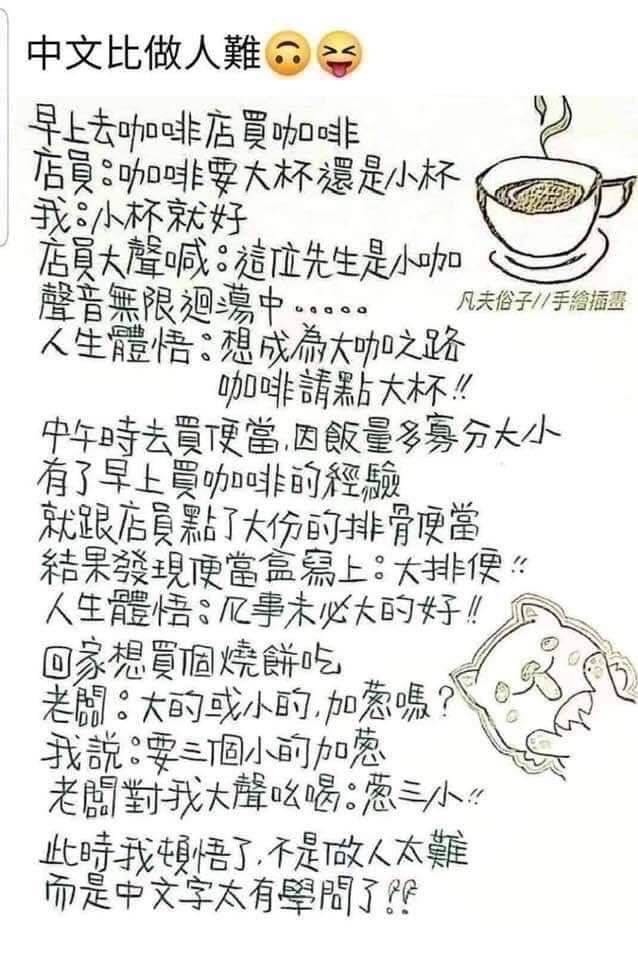 中文比做人難🙃😝
早上去咖啡店買咖啡
店員：咖啡要大杯還是小杯
我：小杯就好
店員大聲喊：這位先生是小咖
聲音無限迴蕩中．．．．．
凡夫俗子//手繪插畫
人生體悟：想成為大咖之路
咖啡請點大杯!!
中午時去買便當，因飯量多寡分大小
有了早上買咖啡的經驗
就跟店員點了大份的排骨便當
結果發現便當盒寫上：大排便!!
人生體悟：凡事未必大的好!!
回家想買個燒餅吃
老闆：大的或小的，加蔥嗎？
我說：要三個小的加蔥
老闆對我大聲吆喝：蔥三小!!
此時我頓悟了，不是做人太難
而是中文字太有學問了??